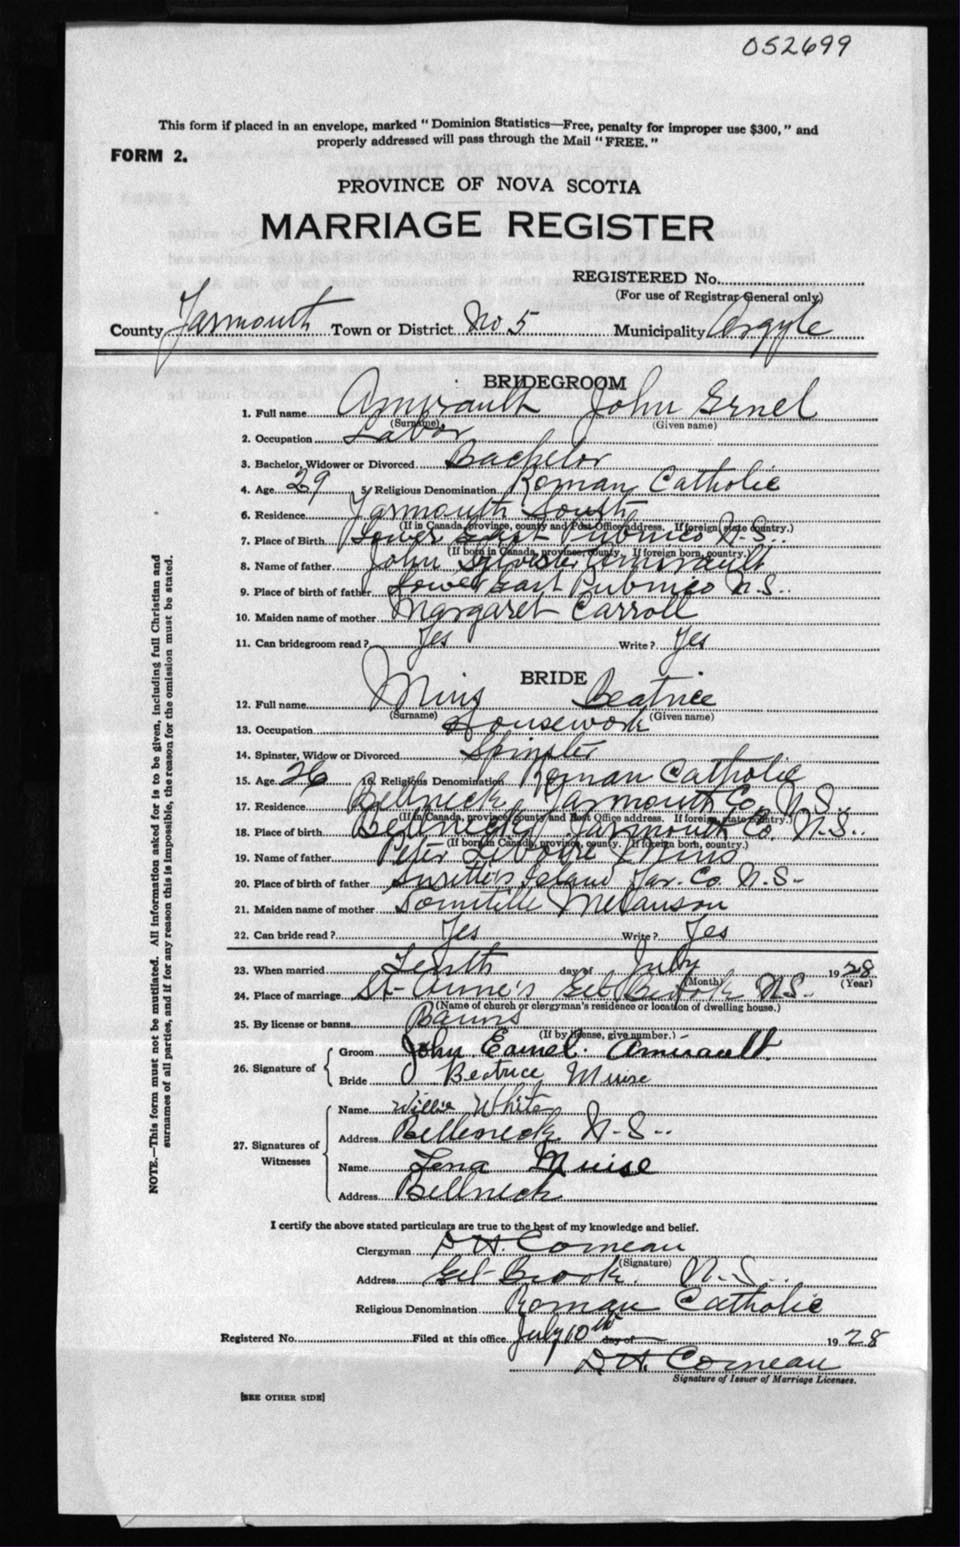 052699
This form if placed in an envelope, marked "Dominion Statistics—Free, penalty for improper use $300," and
properly addressed will pass through the Mail "FREE."
FORM 2.
PROVINCE OF NOVA SCOTIA
MARRIAGE REGISTER
REGISTERED No.
(For use of Registrar General only)
County Yarmouth Town or District No 5 Municipality Argyle
BRIDEGROOM
1. Full name Amirault John Ernel
(Surname) (Given name)
2. Occupation Labor
3. Bachelor, Widower or Divorced Bachelor
4. Age 29 5. Religious Denomination Roman Catholic
6. Residence Yarmouth South
(If in Canada, province, county and Post Office address. If foreign state country.)
7. Place of Birth Lower East Pubnico N.S..
(If born in Canada, province, county. If foreign born, country.)
8. Name of father John Amirault
9. Place of birth of father Lower East Pubnico N.S..
10. Maiden name of mother Margaret Carroll
11. Can bridegroom read? Yes Write? Yes
BRIDE
12. Full name Mius Beatrice
(Surname) (Given name)
13. Occupation Housework
14. Spinster, Widow or Divorced Spinster
15. Age 26 16. Religious Denomination Roman Catholic
17. Residence Bellneck Yarmouth Co. N.S..
(If in Canada, province, county and Post Office address. If foreign state country.)
18. Place of birth Bellneck Yarmouth Co. N.S..
(If born in Canada, province, county. If foreign born, country.)
19. Name of father Peter Mius
20. Place of birth of father Surette's Island Yar. Co. N.S-
21. Maiden name of mother Melanson
22. Can bride read? Yes Write? Yes
23. When married Tenth day of July 1928
(Month) (Year)
24. Place of marriage St-Anne's Eel Brook N.S..
(Name of church or clergyman's residence or location of dwelling house.)
25. By license or banns Banns
(If by license, give number.)
26. Signature of Groom John Earnel Amirault
Bride Beatrice Muise
27. Signatures of Witnesses
Name Willie White
Address Bellneck N-S..
Name Lena Muise
Address Bellneck
I certify the above stated particulars are true to the best of my knowledge and belief.
Clergyman D H. Comeau
(Signature)
Address Eel-Brook. N.S...
Religious Denomination Roman Catholic
Registered No. Filed at this office July 10th day of 1928
D H. Comeau
Signature of Issuer of Marriage Licenses.
[SEE OTHER SIDE]
NOTE.—This form must not be mutilated. All information asked for is to be given, including full Christian and
surnames of all parties, and if for any reason this is impossible, the reason for the omission must be stated.